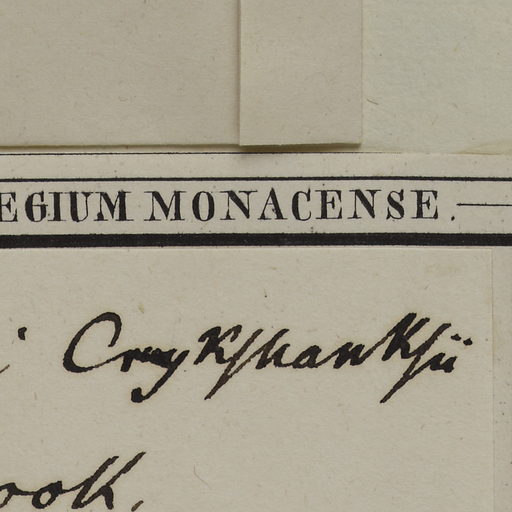 EGIUM MONACENSE.
Cruykshanksii
ook.